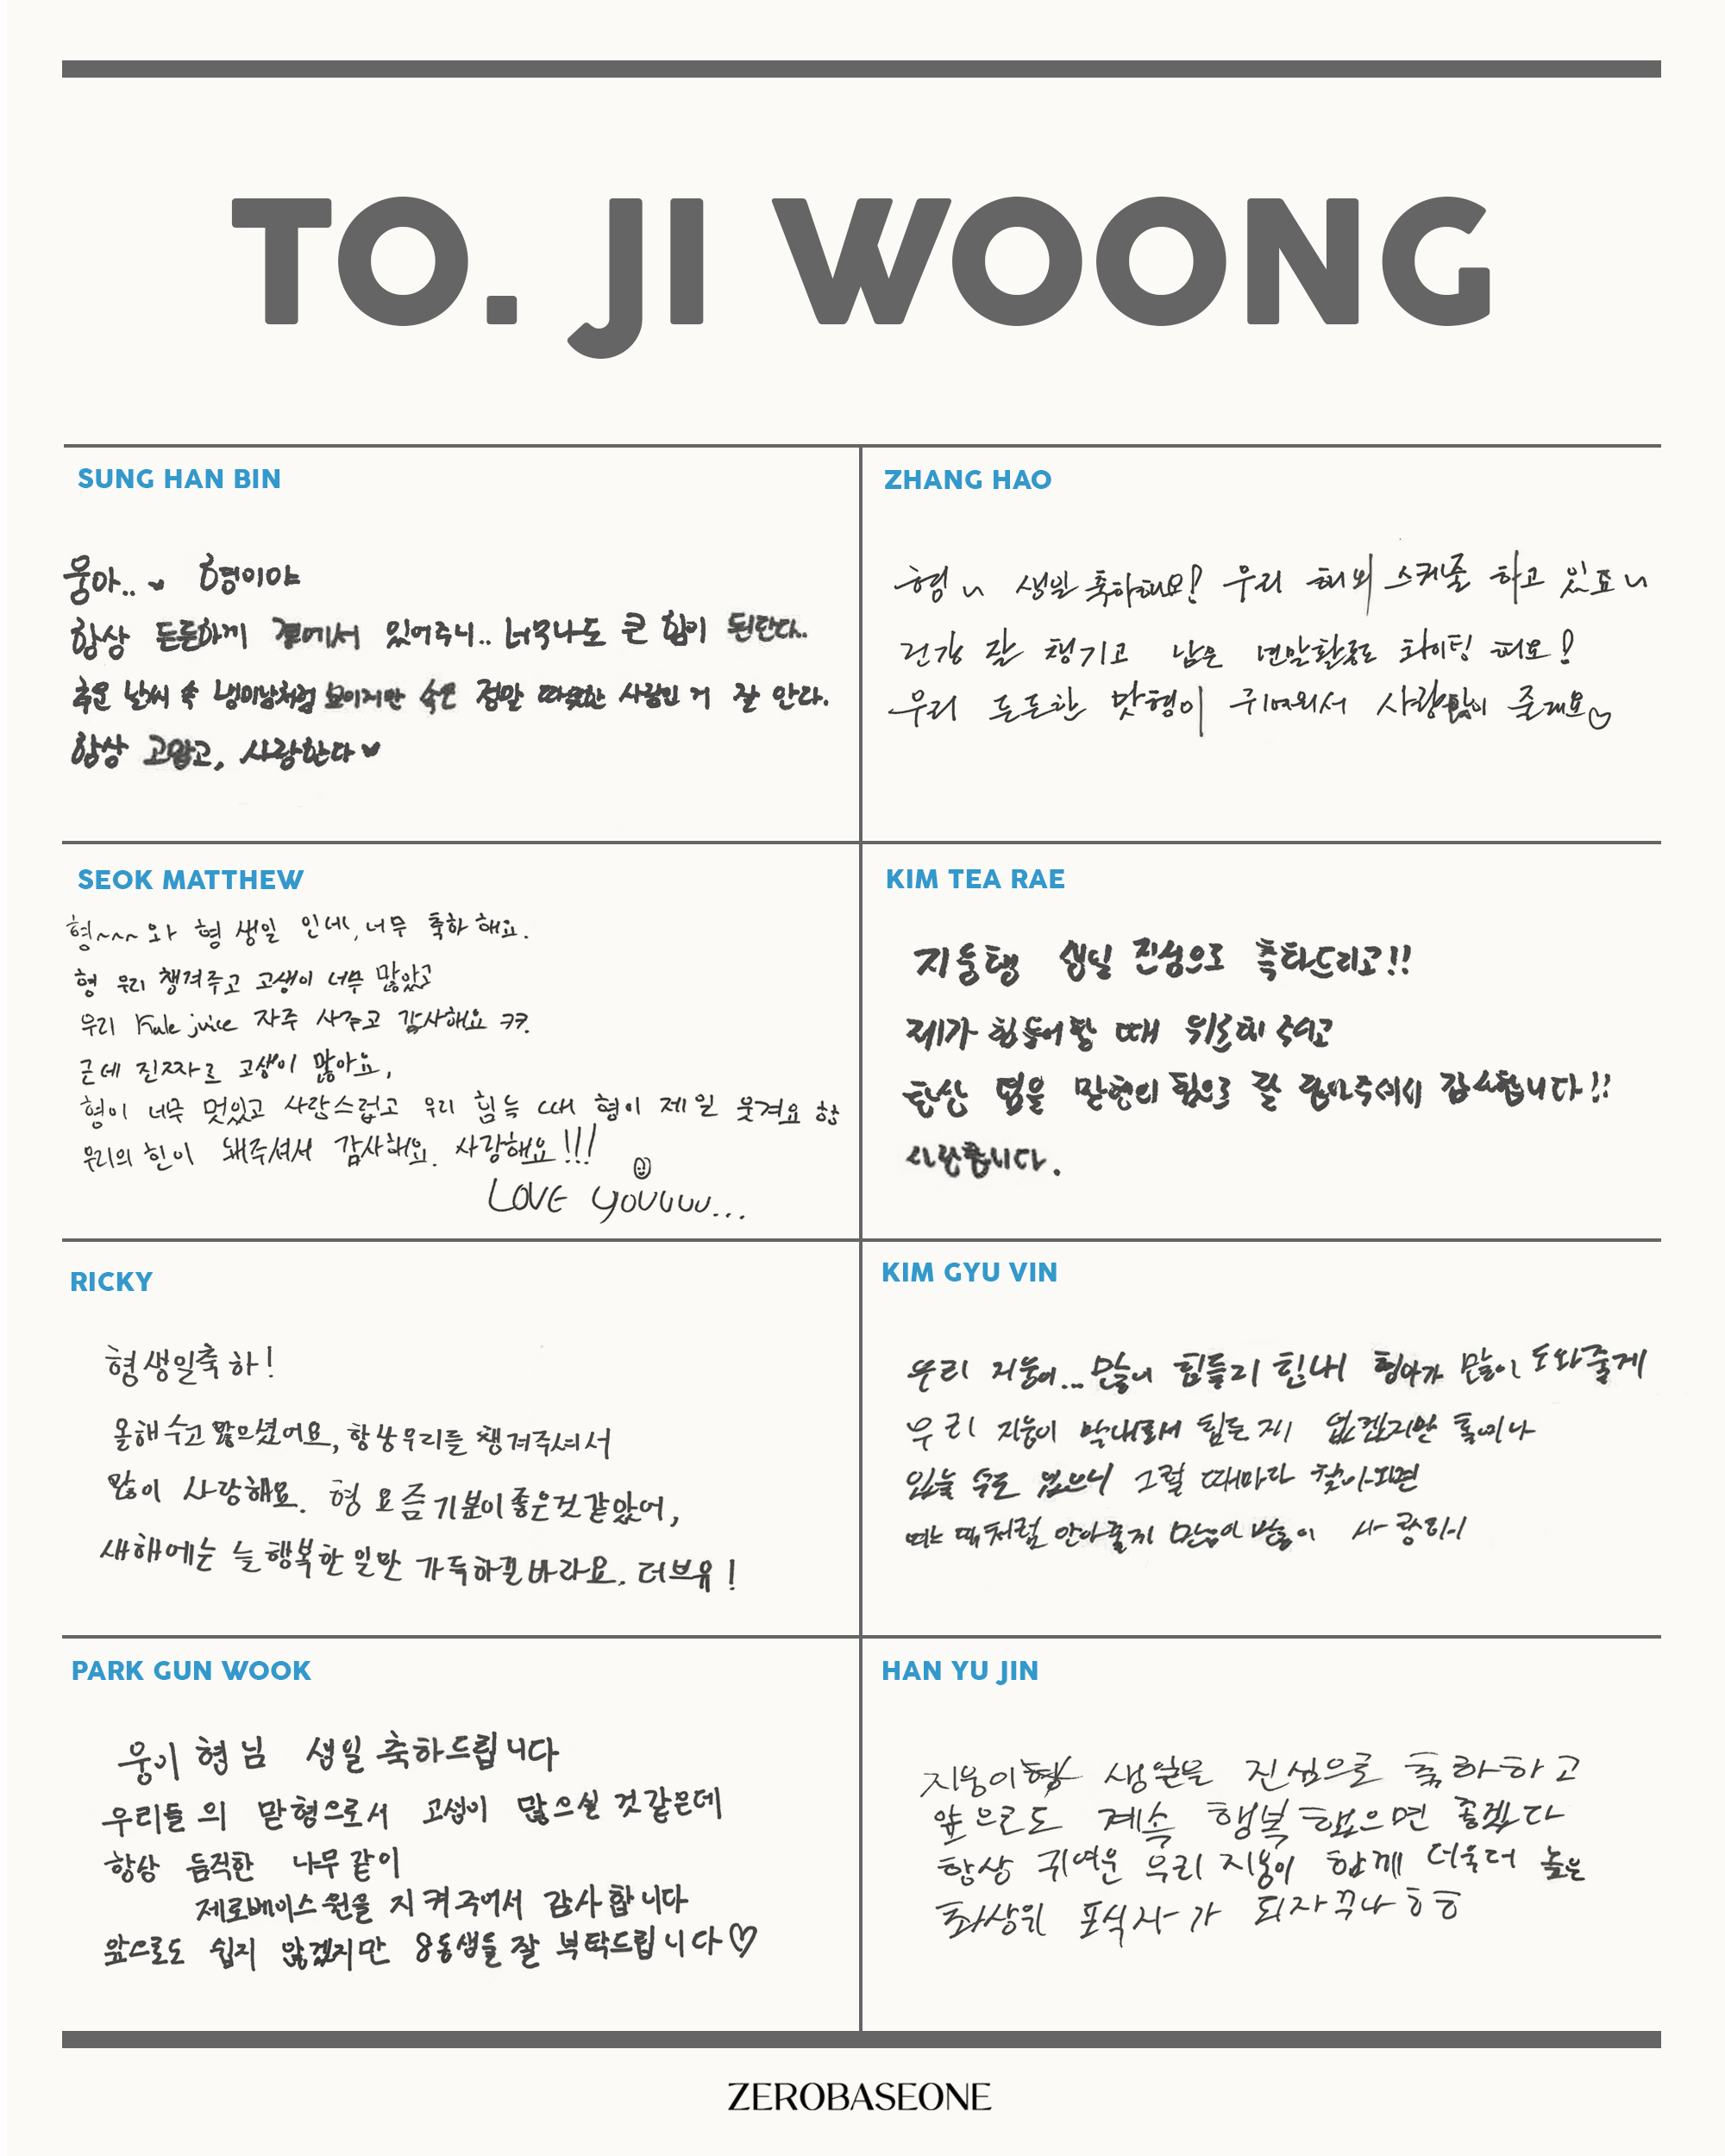 TO. JI WOONG
SUNG HAN BIN
웅아.. 형이야
항상 든든하게 곁에서 있어주니.. 너무나도 큰 힘이 된단다.
추운 날씨 속 냉미남처럼 보이지만 속은 정말 따뜻한 사람인 거 잘 안다.
항상 고맙고, 사랑한다♥
ZHANG HAO
형 ㅆ 생일 축하해요! 우리 해외 스케줄 하고 있죠
건강 잘 챙기고 남은 연말활동도 화이팅 해요!
우리 든든한 맛형이 귀여워서 사랑많이 줄게요♡
SEOK MATTHEW
형~~~ 와 형 생일 인네, 너무 축하 해요.
형 우리 챙겨주고 고생이 너무 많았고
우리 Kale juice 자주 사주고 감사해요 ㅋㅋ.
근데 진짜로 고생이 많아요,
형이 너무 멋있고 사랑스럽고 우리 힘늑 때 형이 제일 웃겨요 항
우리의 힌이 돼주셔서 감사해요. 사랑해요!!!
LOVE YOUUUU...
KIM TEA RAE
지웅햄 생일 진심으로 축하드리고!!
제가 힘들어할 때 위로해 주고
항상 팀을 맏형의 힘으로 잘 잡아주셔서 감사합니다!!
사랑합니다.
RICKY
형생일축하!
올해수고 많으셨어요, 항상우리를 챙겨주셔서
많이 사랑해요. 형 요즘기분이좋은것같았어,
새해에는 늘 행복한 일만 가득하길바라요. 더브유!
KIM GYU VIN
우리 지웅이... 많이 힘들지 힌내 형아가 많이 도와줄게
우리 지웅이 막내로서 힘든 게 없겠지만 혹여나
있을 수도 있으니 그럴 때마다 찾아오면
여느 때처럼 안아줄게 많이 많이 사랑해
PARK GUN WOOK
웅이 형님 생일 축하드립니다
우리들의 맏형으로서 고섭이 많으실 것같은데
항상 듬직한 나무 같이
제로베이스원을 지켜주어서 감사합니다
앞으로도 쉽지 않겠지만 8동생들 잘 부탁드립니다♡
HAN YU JIN
지웅이형 생일을 진심으로 축하하고
앞으로도 계속 행복했으면 좋겠다
항상 귀여운 우리 지웅이 함께 더욱더 높은
최상위 포식자가 되자꾸나 ㅎㅎ
ZEROBASEONE